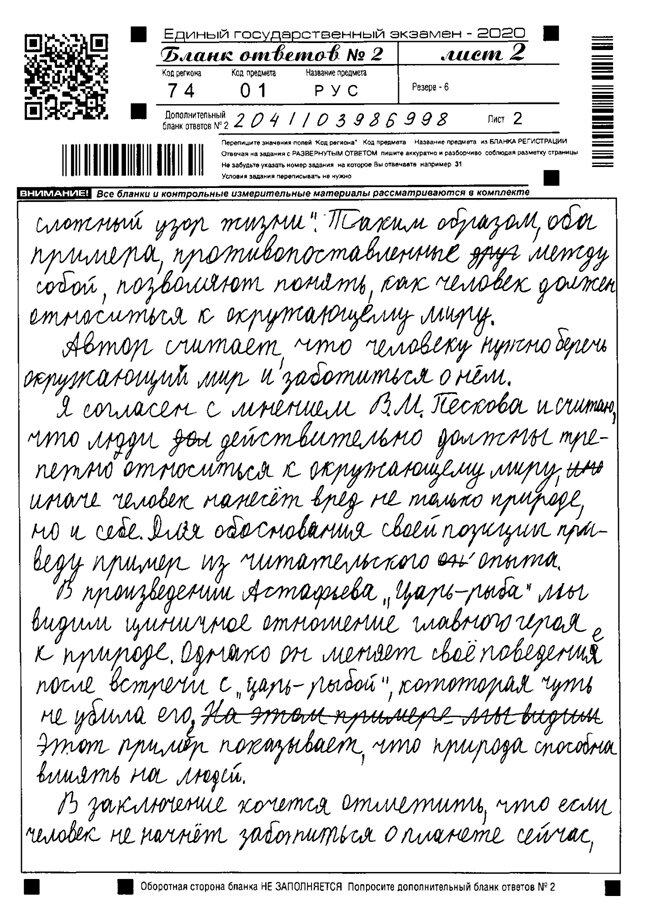 Единый государственный экзамен - 2020
Бланк ответов № 2 лист 2
Код региона Код предмета Название предмета
74 01 РУС Резерв - 6
Дополнительный бланк ответов № 2 2041103986998 Лист 2
Перепишите значения полей "Код региона" Код предмета Название предмета из БЛАНКА РЕГИСТРАЦИИ
Отвечая на задания с РАЗВЕРНУТЫМ ОТВЕТОМ пишите аккуратно и разборчиво соблюдая разметку страницы
Не забудьте указать номер задания на которое Вы отвечаете например 31
Условия задания переписывать не нужно
ВНИМАНИЕ! Все бланки и контрольные измерительные материалы рассматриваются в комплекте
сложный узор жизни". Таким образом, оба
примера, противопоставленные друг между
собой, позволяют понять, как человек должен
относиться к окружающему миру.
Автор считает, что человеку нужно беречь
окружающий мир и заботиться о нём.
Я согласен с мнением В.М. Пескова и считаю,
что люди дол действительно должны тре-
петно относиться к окружающему миру, ина
иначе человек нанесёт вред не только природе,
но и себе. Для обоснования своей позиции при-
веду пример из читательского оп опыта.
В произведении Астафьева „Царь-рыба" мы
видим циничное отношение главного героя
к природе. Однако он меняет своё поведение
после встречи с „царь-рыбой", кототорая чуть
не убила его. На этом примере мы видим
Этот пример показывает, что природа способна
влиять на людей.
В заключение хочется отметить, что если
человек не начнёт заботиться о планете сейчас,
Оборотная сторона бланка НЕ ЗАПОЛНЯЕТСЯ Попросите дополнительный бланк ответов № 2